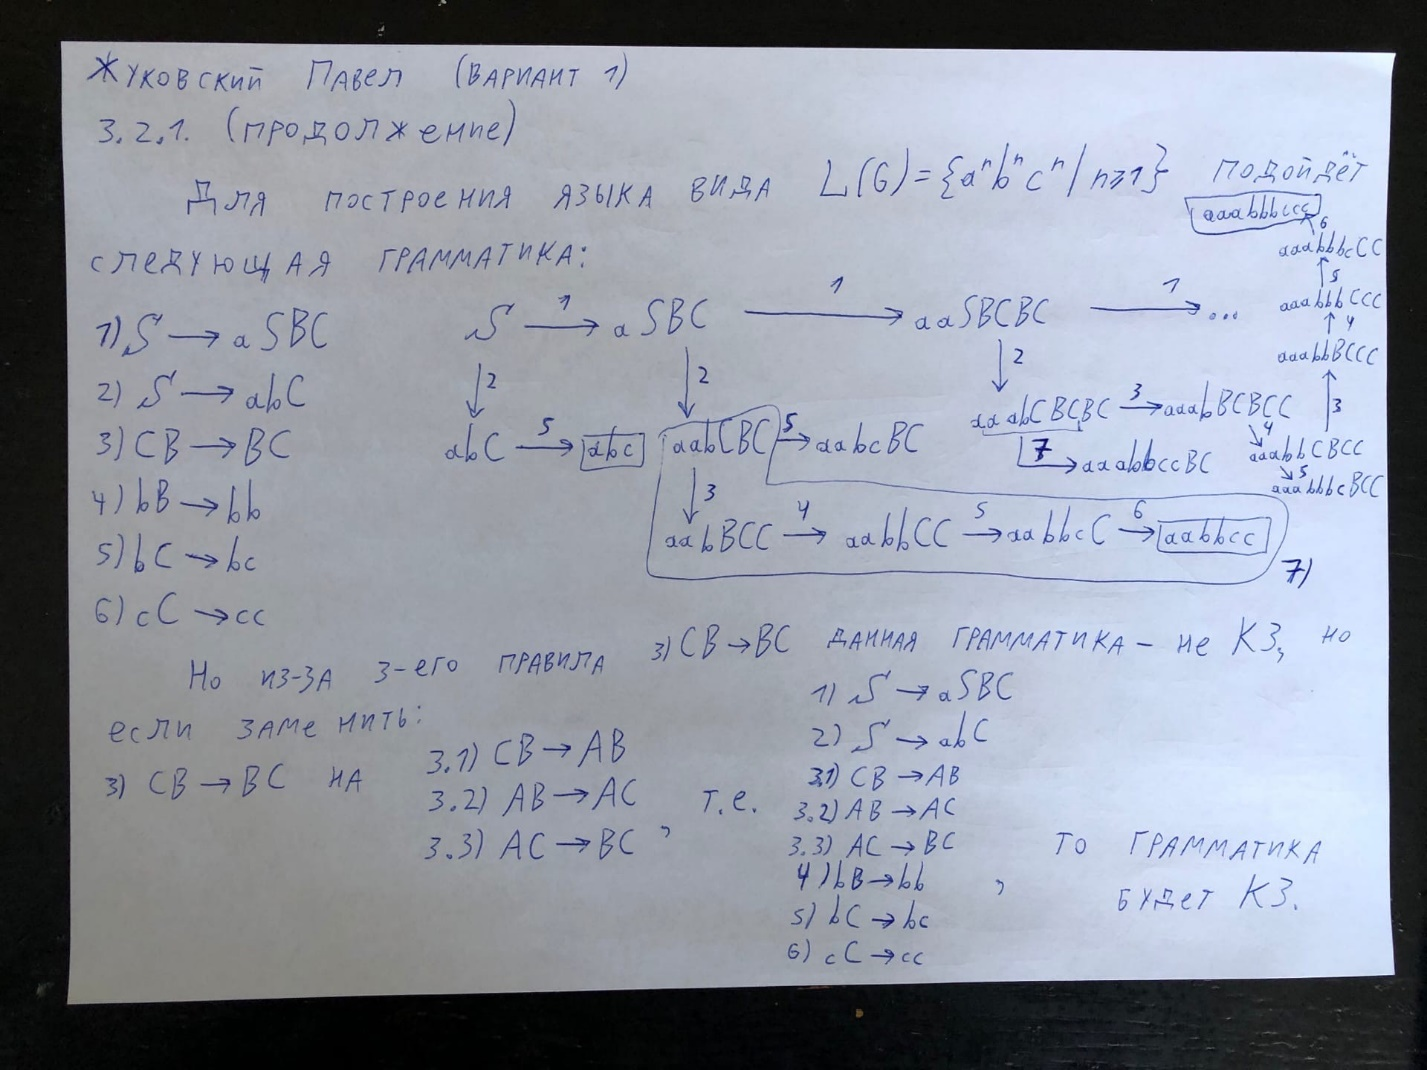 Жуковский Павел (Вариант 1)
3.2.1. (продолжение)
Для построения языка вида L(G)={aⁿbⁿcⁿ|n≥1} подойдёт
следующая грамматика:
1) S → aSBC
2) S → abC
3) CB → BC
4) bB → bb
5) bC → bc
6) cC → cc
S 1→ aSBC 1→ aaSBCBC 1→ ...
↓2 ↓2 ↓2
abC 5→ abc
aabCBC 5→ aabcBC
↓3
aabBCC 4→ aabbCC 5→ aabbcC 6→ aabbcc
7)
aaabCBCBC 3→ aaabBCBCC
7→ aaabbccBC
↘4
aaabbCBCC
↘5
aaabbbcBCC
aaabbbccc
↑6
aaabbbcCC
↑5
aaabbbCCC
↑4
aaabbBCCC
↑3
Но из-за 3-его правила 3) CB → BC данная грамматика – не КЗ, но
если заменить:
3) CB → BC на
3.1) CB → AB
3.2) AB → AC
3.3) AC → BC , т.е.
1) S → aSBC
2) S → abC
3.1) CB → AB
3.2) AB → AC
3.3) AC → BC
4) bB → bb ,
5) bC → bc
6) cC → cc
то грамматика
будет КЗ.